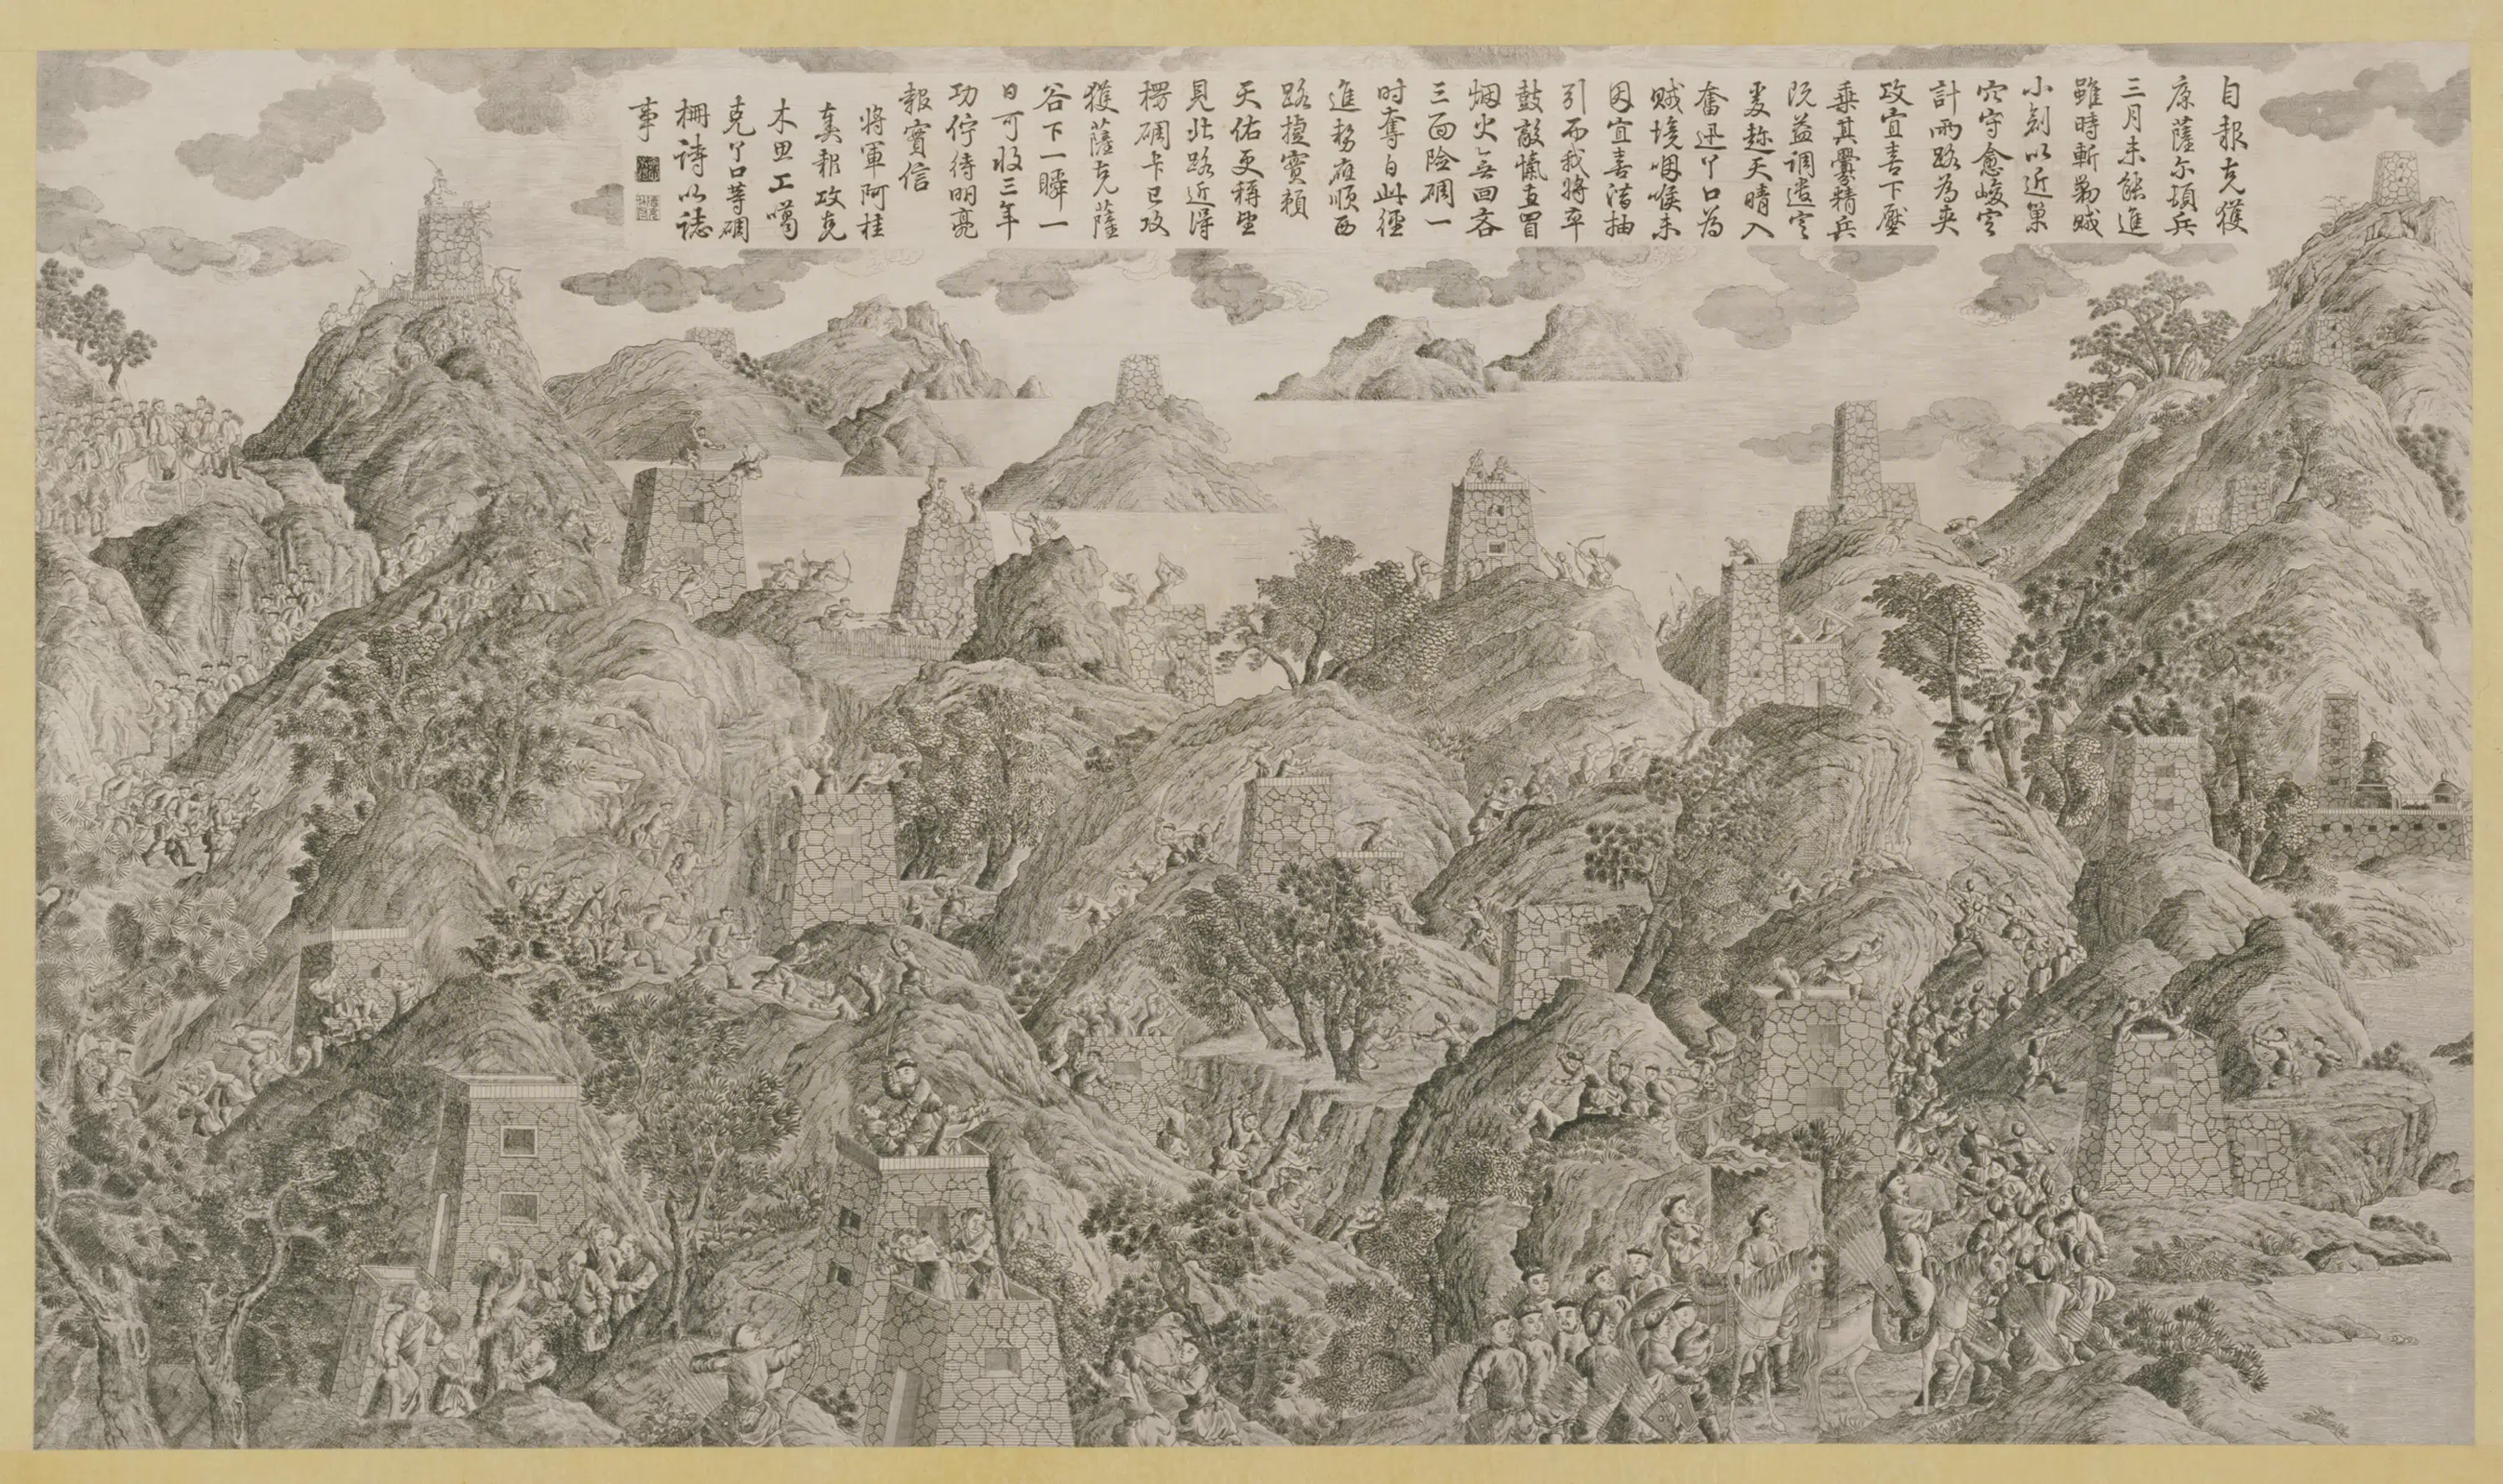 自報克獲
康薩尔頓兵
三月未能進
雖時斬勦賊
小剉以近巢
穴守愈峻官
計兩路為夾
攻宜喜下壓
乗其釁精兵
既益調遣官
更趁天晴入
奮迅丫口為
賊境咽喉未
因宜喜潛抽
引而我將卒
鼓敵愾直冒
烟火無回吝
三面險碉一
時奪自此徑
進務應順西
路擅寳賴
天佑更稱堅
見此路近得
楞碉卡已攻
獲薩克薩
谷下一瞬一
日可收三年
功佇待明亮
報實信
將軍阿桂
奏報攻克
木思工噶
克丫口等碉
柵詩以誌
事